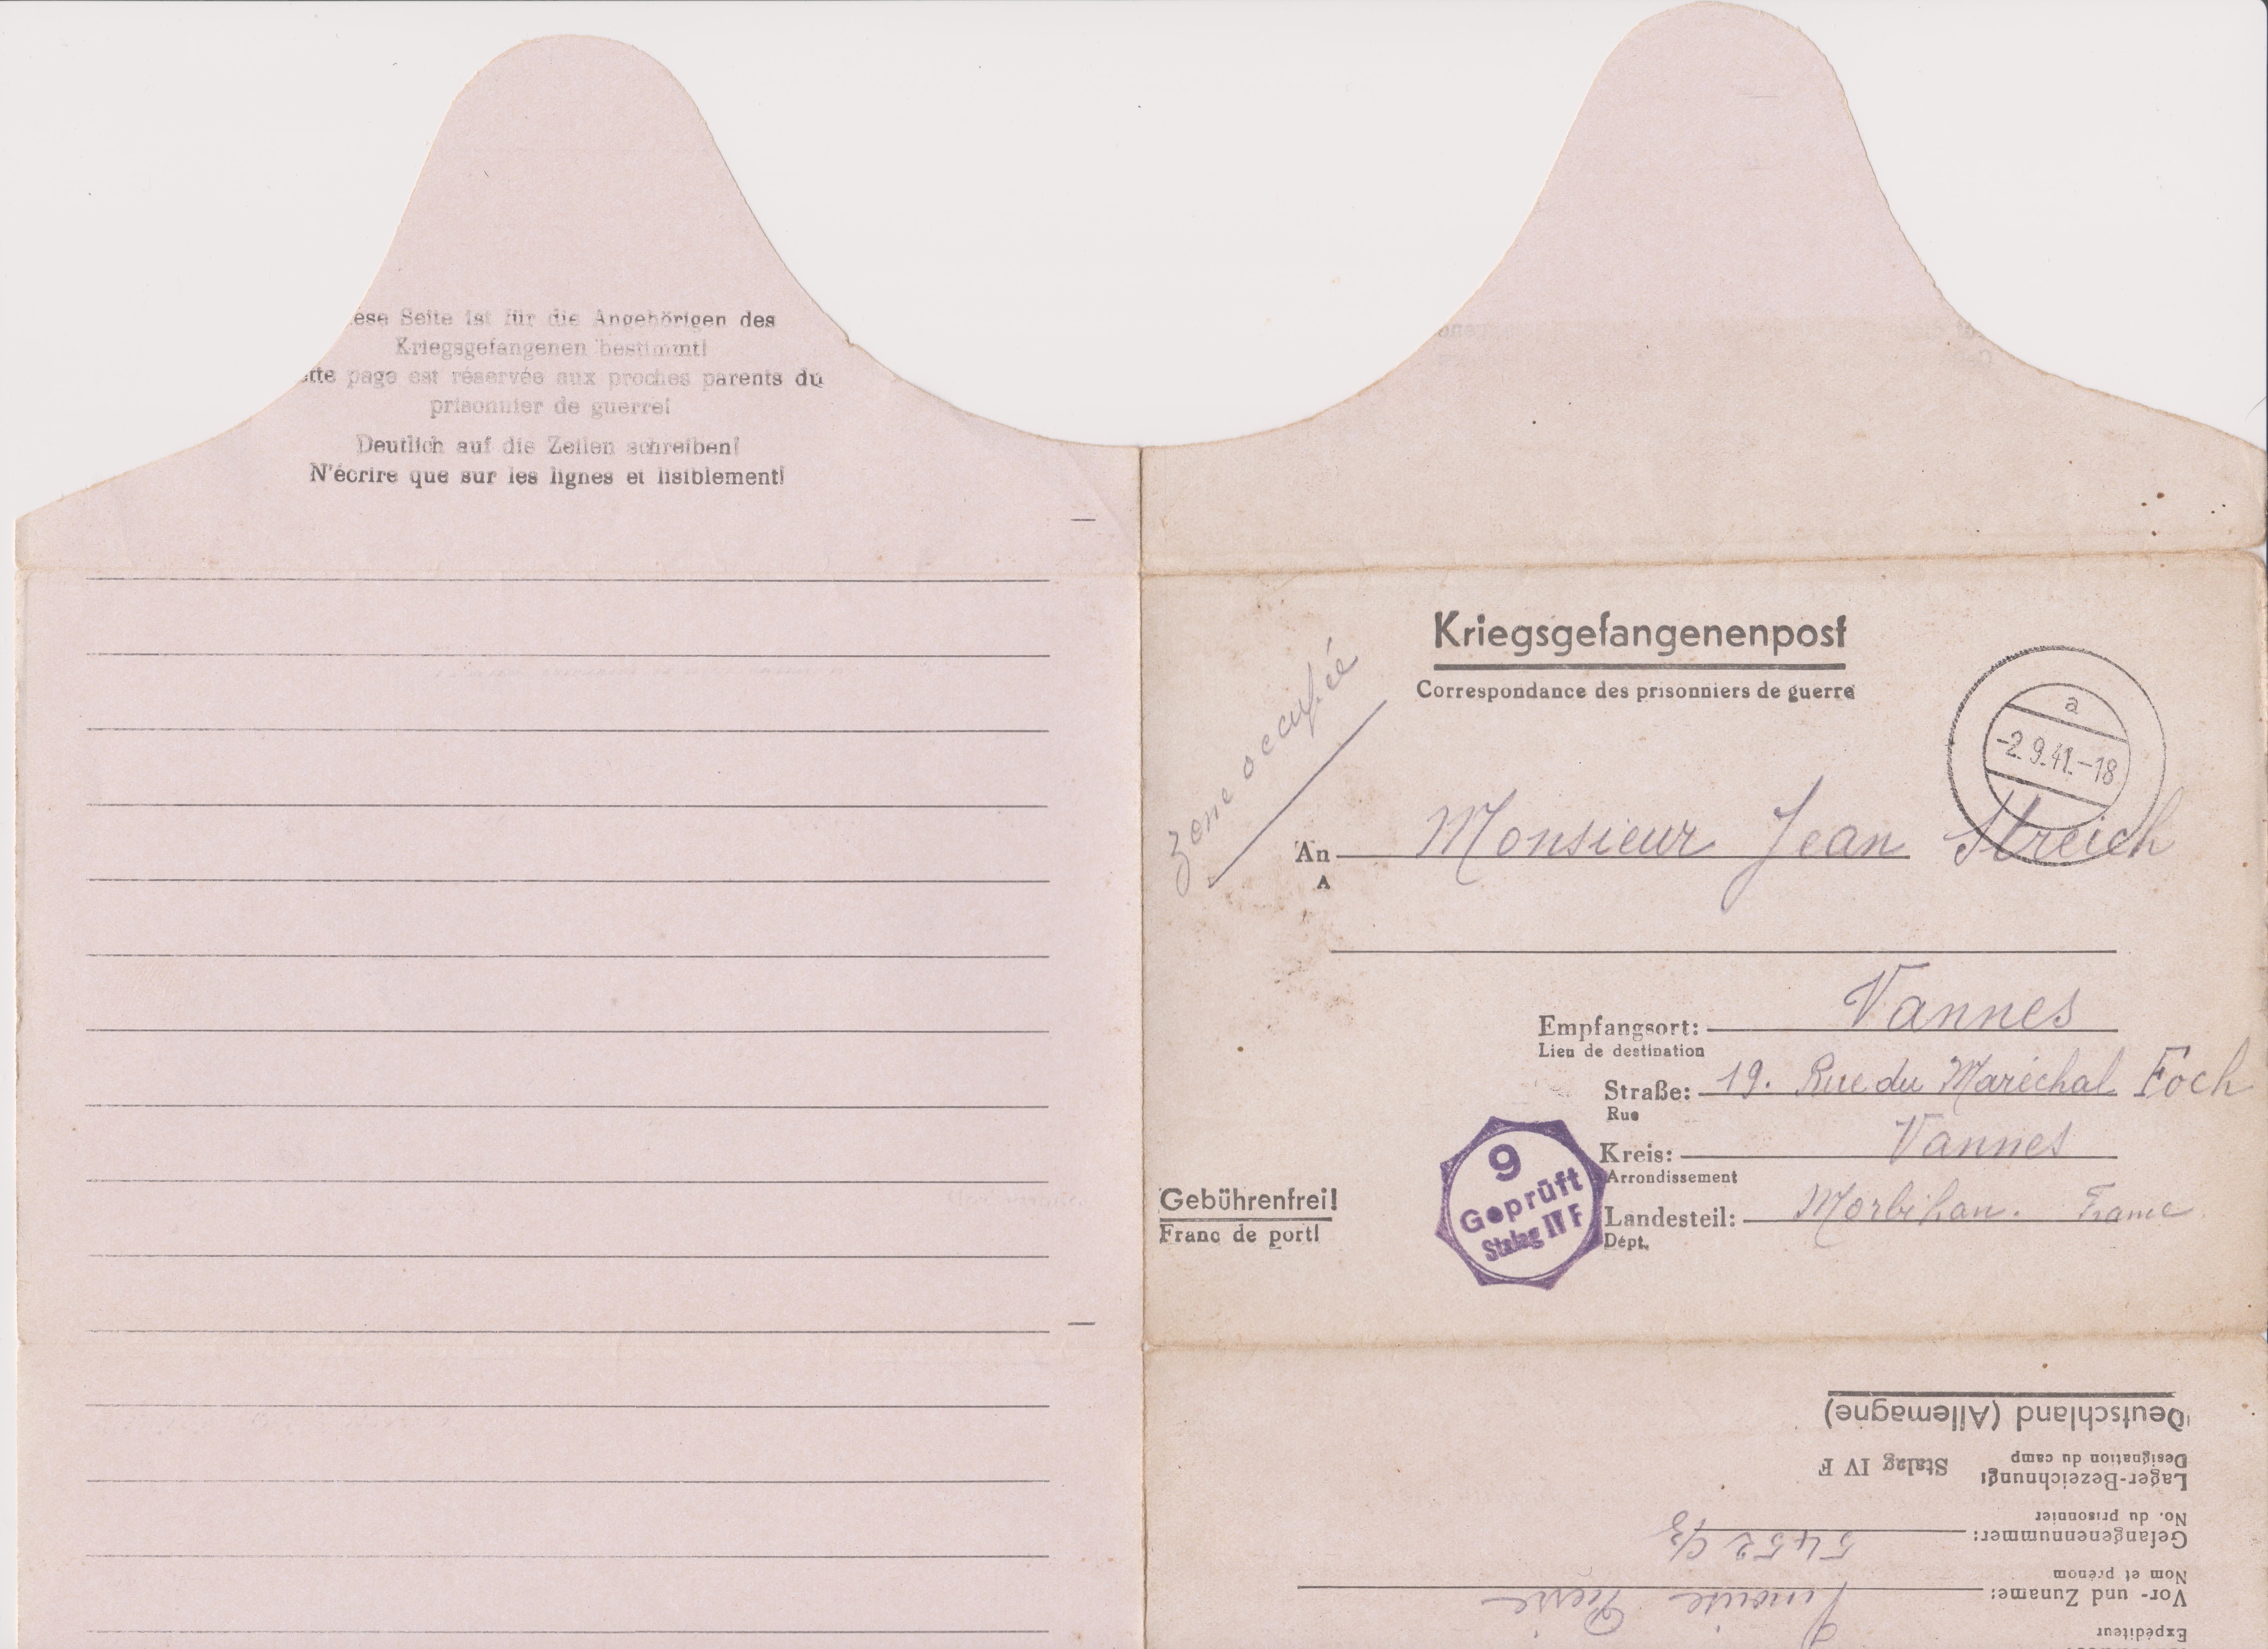 ese Seite ist für die Angehörigen des
Kriegsgefangenen bestimmt!
tte page est réservée aux proches parents du
prisonnier de guerre!
Deutlich auf die Zeilen schreiben!
N'écrire que sur les lignes et lisiblement!
Kriegsgefangenenpost
Correspondance des prisonniers de guerre
zone occupée
a
-2.9.41.-18
An Monsieur Jean Streich
A
Empfangsort: Vannes
Lieu de destination
Straße: 19. Rue du Maréchal Foch
Rue
Kreis: Vannes
Arrondissement
Landesteil: Morbihan. France
Dépt.
Gebührenfrei!
Franc de port!
9
Geprüft
Stalag IV F
Expéditeur
Vor- und Zuname: Pierre
Nom et prénom
Gefangenennummer: 5452
No. du prisonnier
Lager-Bezeichnung: Stalag IV F
Désignation du camp
Deutschland (Allemagne)